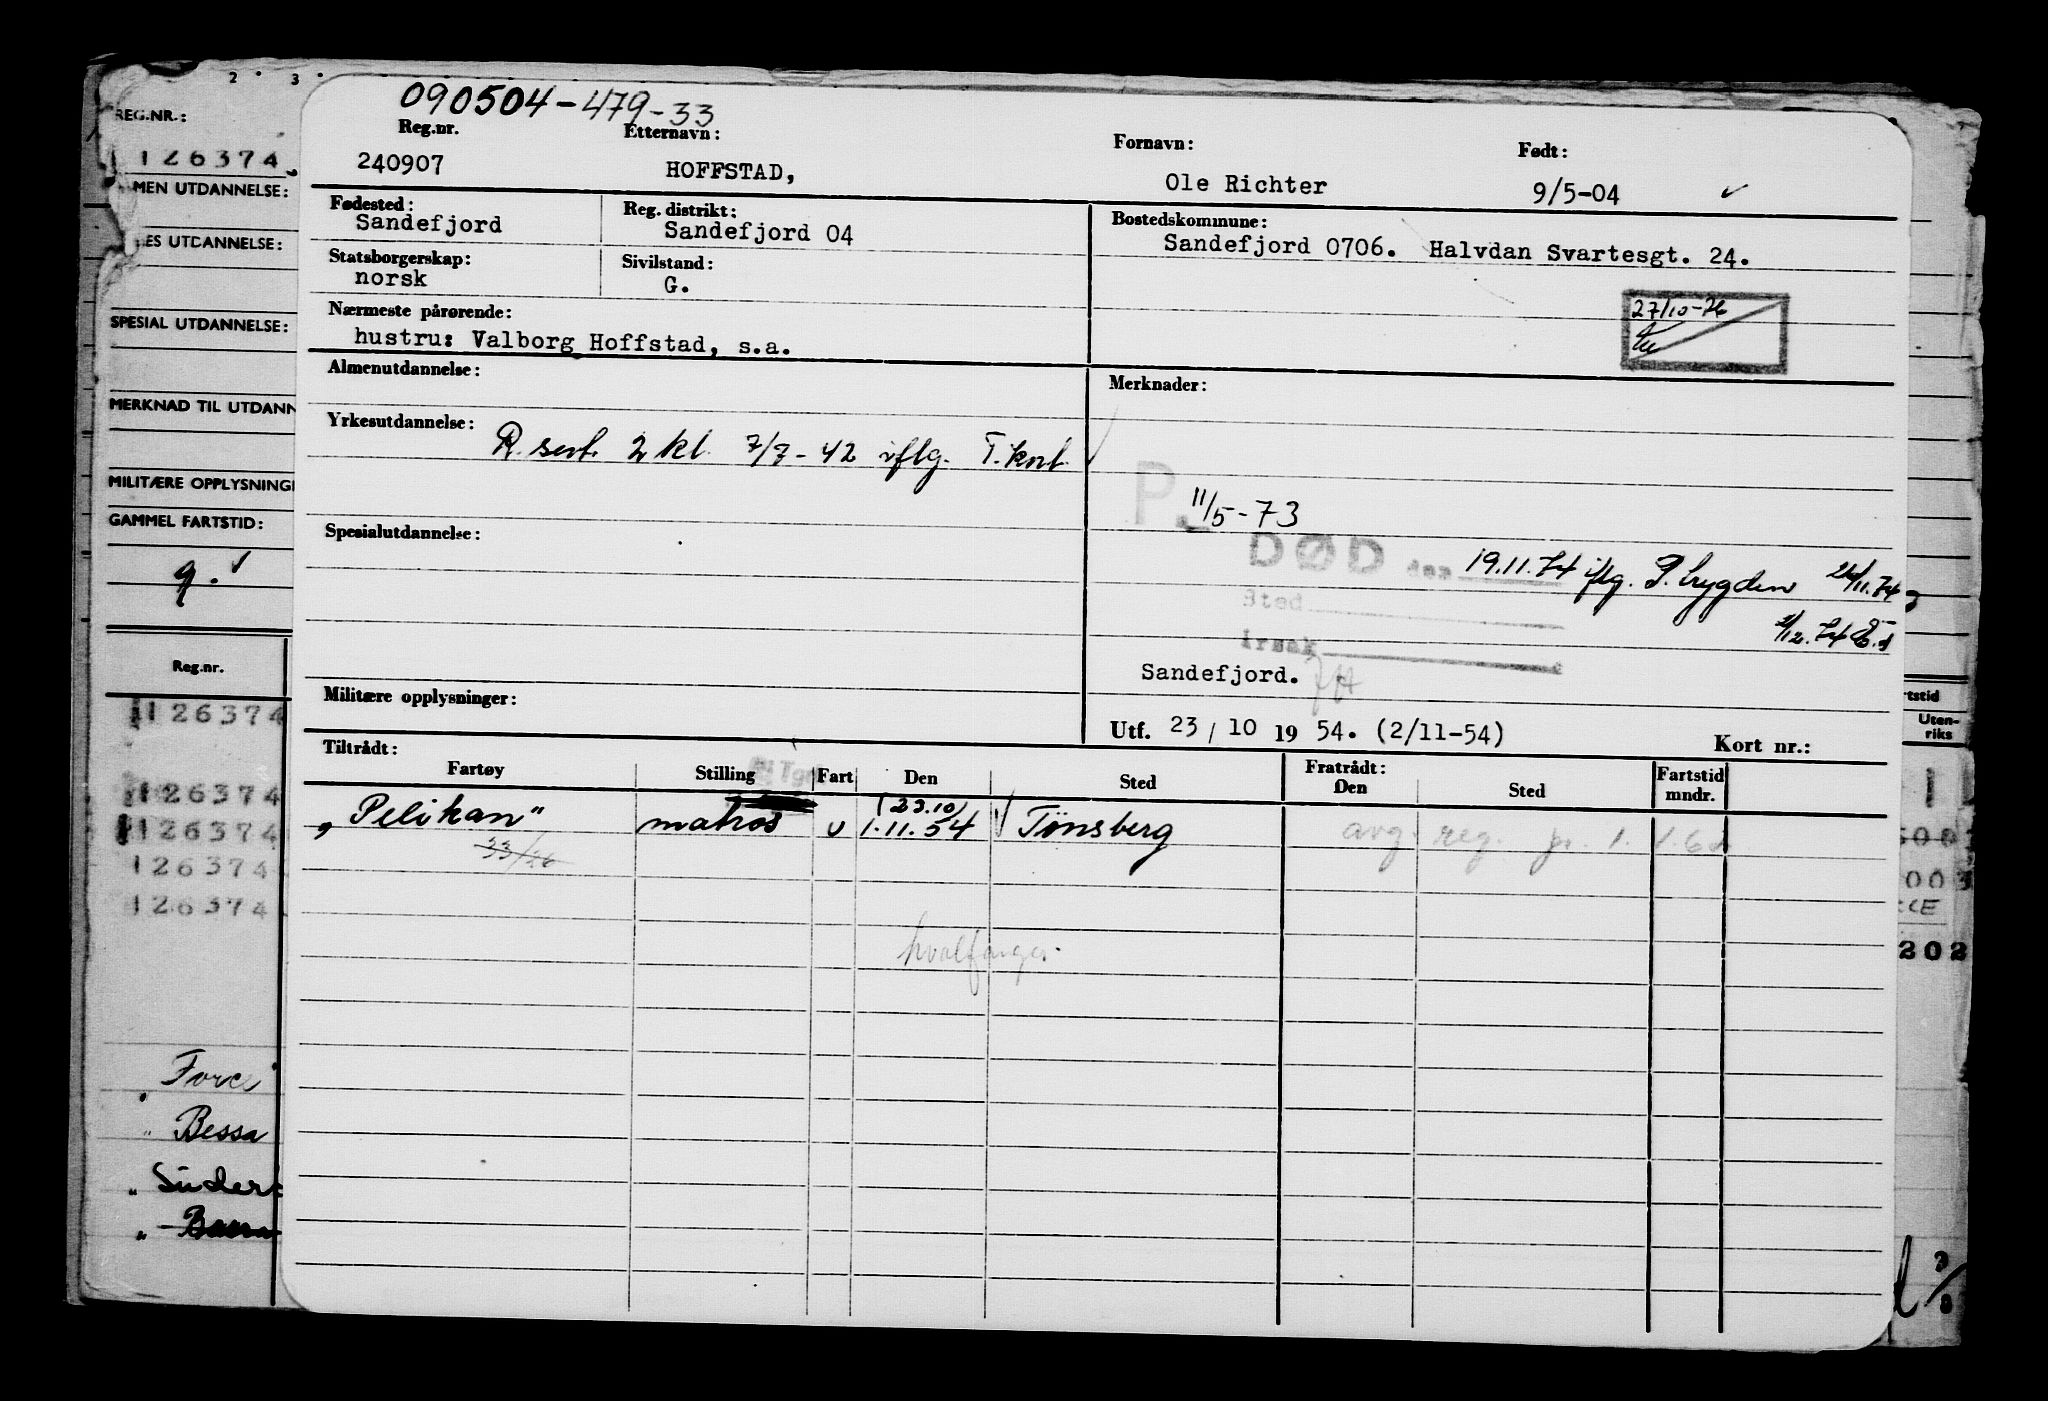 2 . 3 .
REG.NR.:
126374
MEN UTDANNELSE:
ES UTDANNELSE:
SPESIAL UTDANNELSE:
MERKNAD TIL UTDANN
MILITÆRE OPPLYSNING
GAMMEL FARTSTID:
g. ✓
Reg.nr.
126374
126374
126374
126374
126374
Bessa
090504-479-33
Reg.nr. Etternavn: Fornavn: Født:
240907 HOFFSTAD, Ole Richter 9/5-04 ✓
Fødested: Reg. distrikt: Bostedskommune:
Sandefjord Sandefjord 04 Sandefjord 0706. Halvdan Svartesgt. 24.
Statsborgerskap: Sivilstand:
norsk G.
27/10-76
Nærmeste pårørende:
hustru: Valborg Hoffstad, s.a.
Almenutdannelse: Merknader:
Yrkesutdannelse: R. sert. 2 kl. 7/7-42 iflg. T.kort ✓
P. 11/5-73
Spesialutdannelse:
DØD den 19.11.74 iflg. P. trygden
Sted
årsak
Sandefjord.
Militære opplysninger:
Utf. 23 / 10 19 54. (2/11-54) Kort nr.:
Tiltrådt: Fratrådt:
Fartøy Stilling Fart Den Sted Den Sted Fartstid mndr.
(23.10)
„Pelikan" matros u 1.11.54 Tønsberg avg. reg. pr. 1.1.62
33/26
hvalfanger
rtstid
Uten-
riks
202